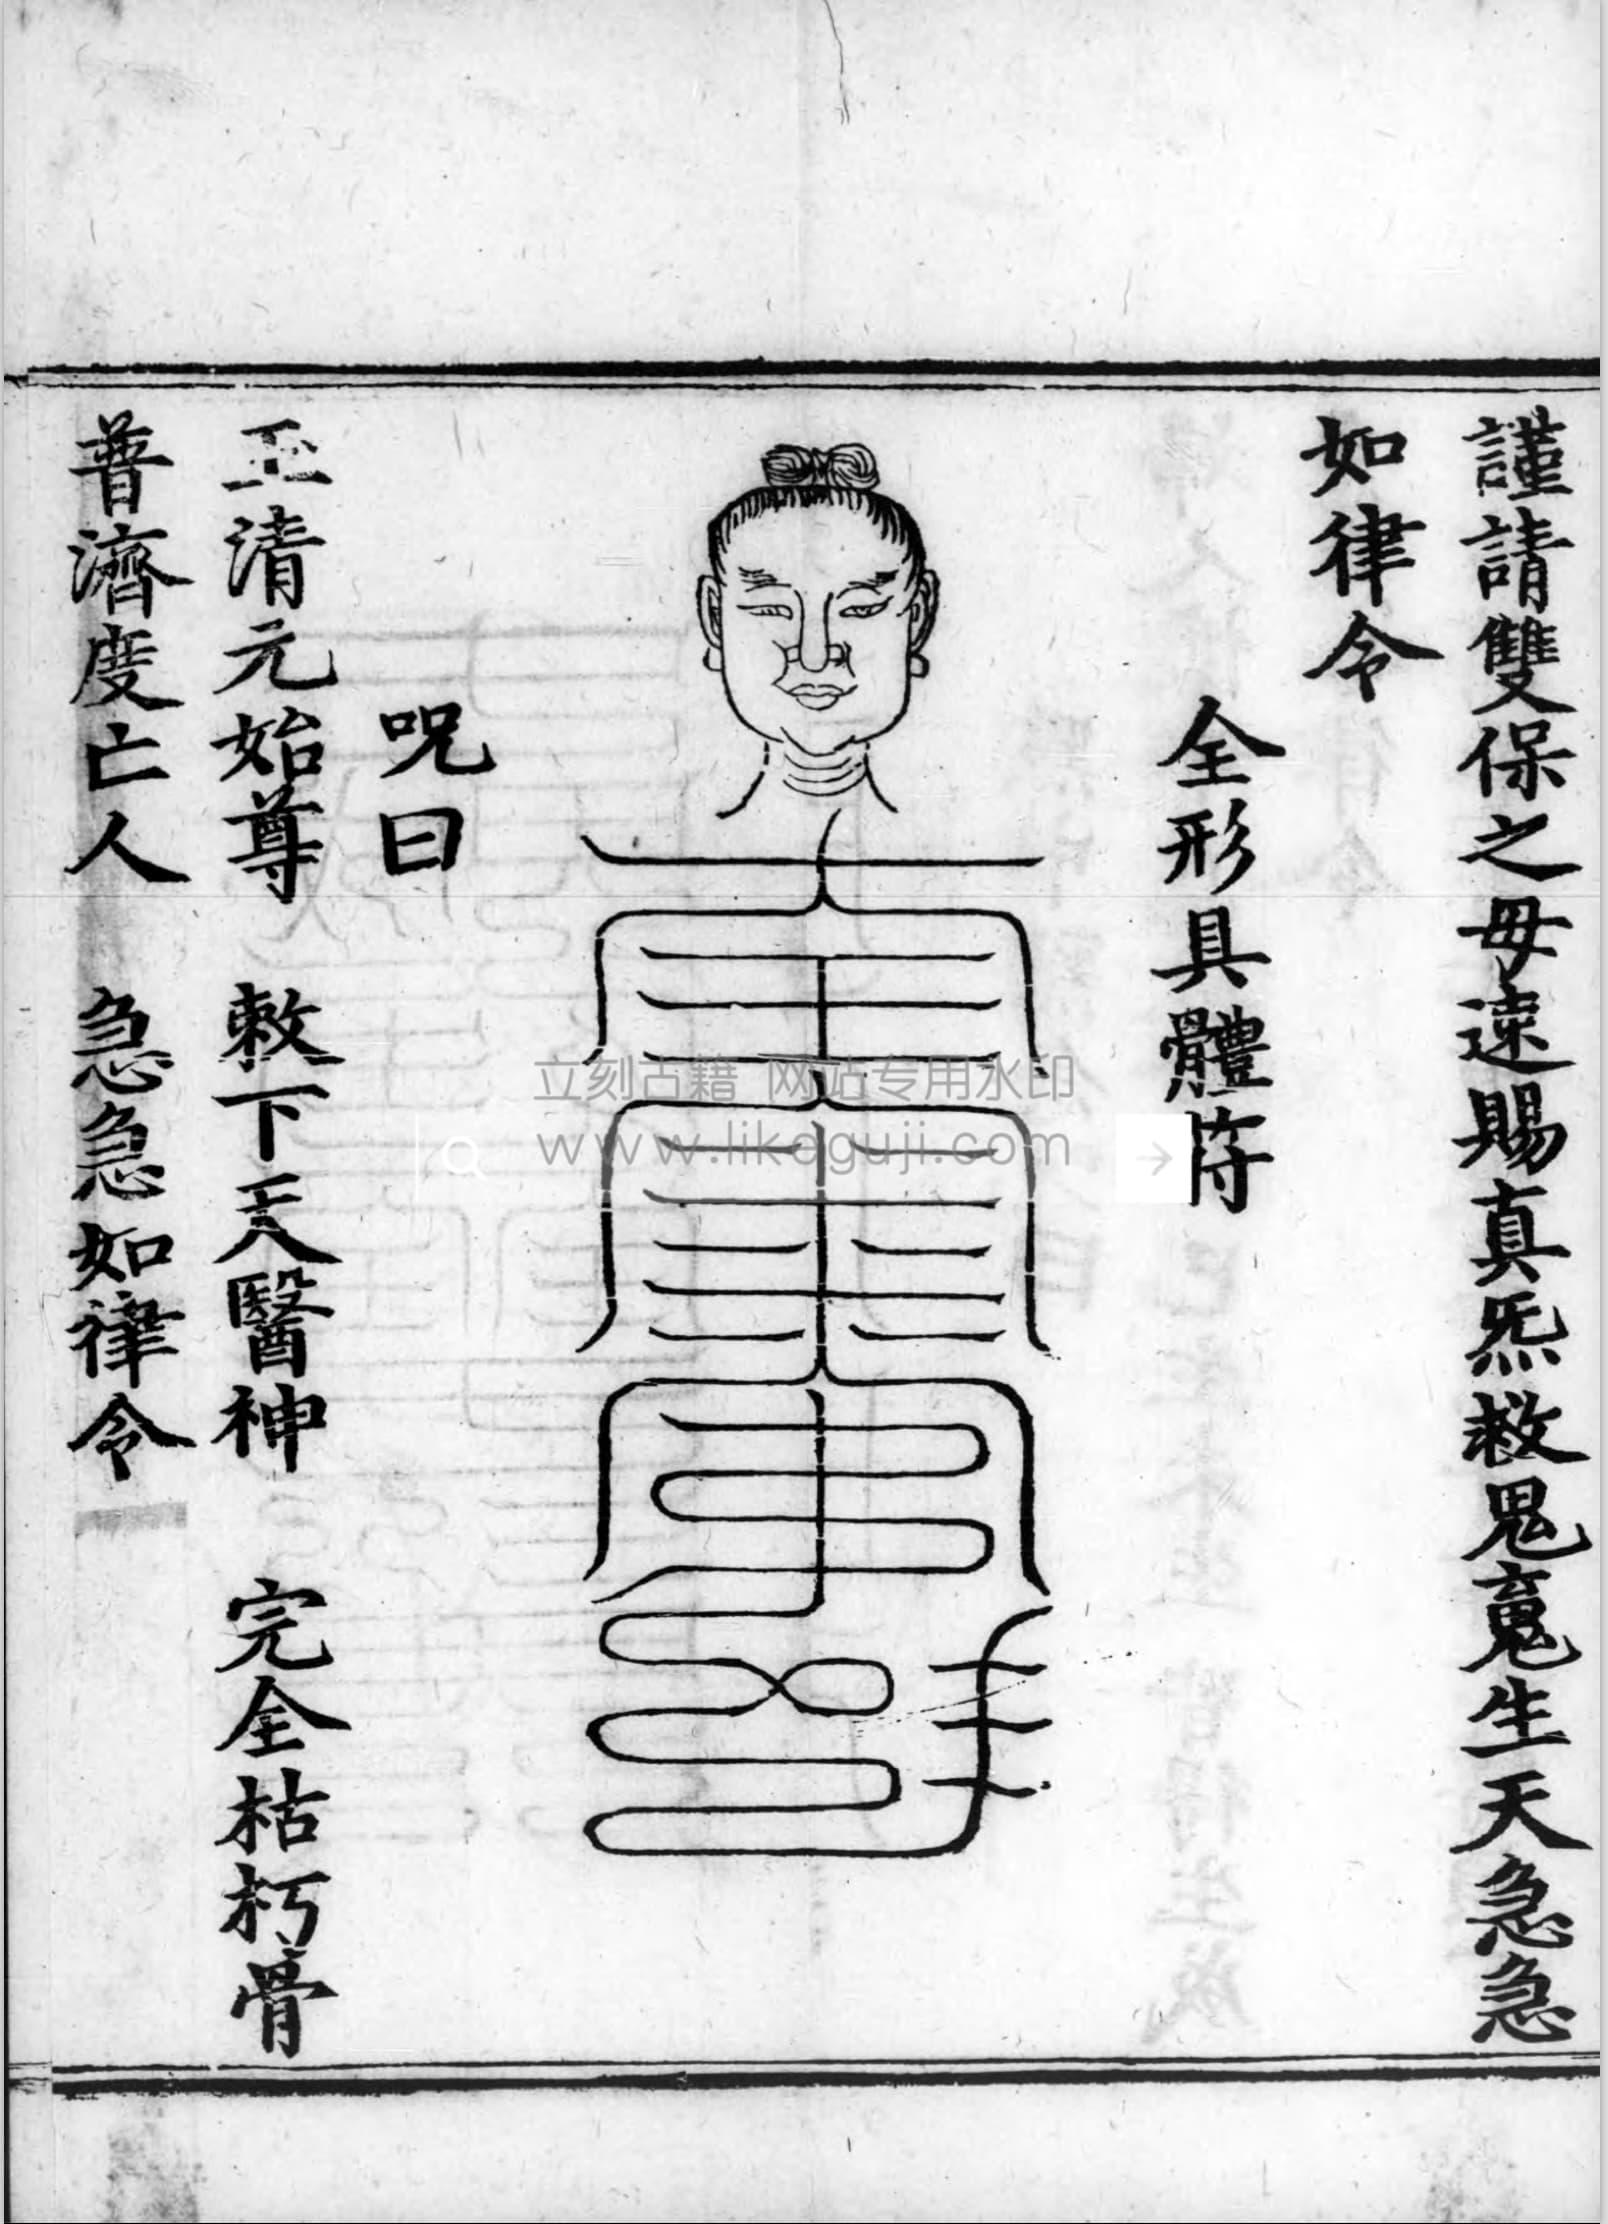 謹請雙保之母速賜真炁救鬼䰟生天急急
如律令
全形具體符
呪曰
玉清元始尊 敕下天醫神 完全枯朽骨
普濟度亡人 急急如律令
立刻古籍 网站专用水印
www.likeguji.com